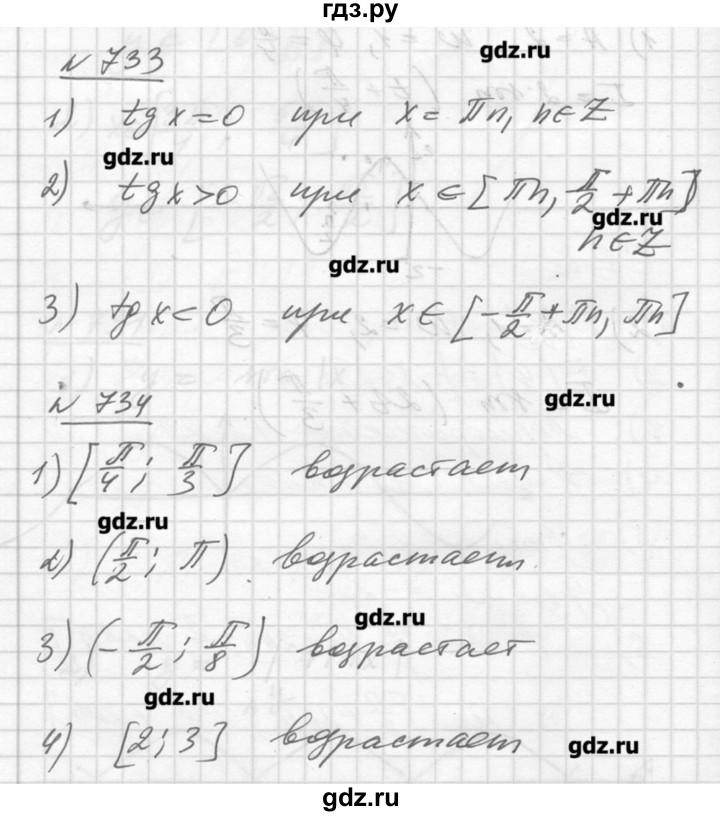 гдз.ру
№ 733
gdz.ru
1) tg x = 0 при x = πn, n∈Z
gdz.ru
2) tg x > 0 при x ∈ [πn, π/2 + πn]
gdz.ru
n∈Z
gdz.ru
3) tg x < 0 при x ∈ [-π/2 + πn, πn]
№ 734
gdz.ru
1) [π/4; π/3] возрастает
gdz.ru
2) (π/2; π) возрастает
gdz.ru
3) (-π/2; π/8) возрастает
gdz.ru
4) [2; 3] возрастает
gdz.ru
gdz.ru